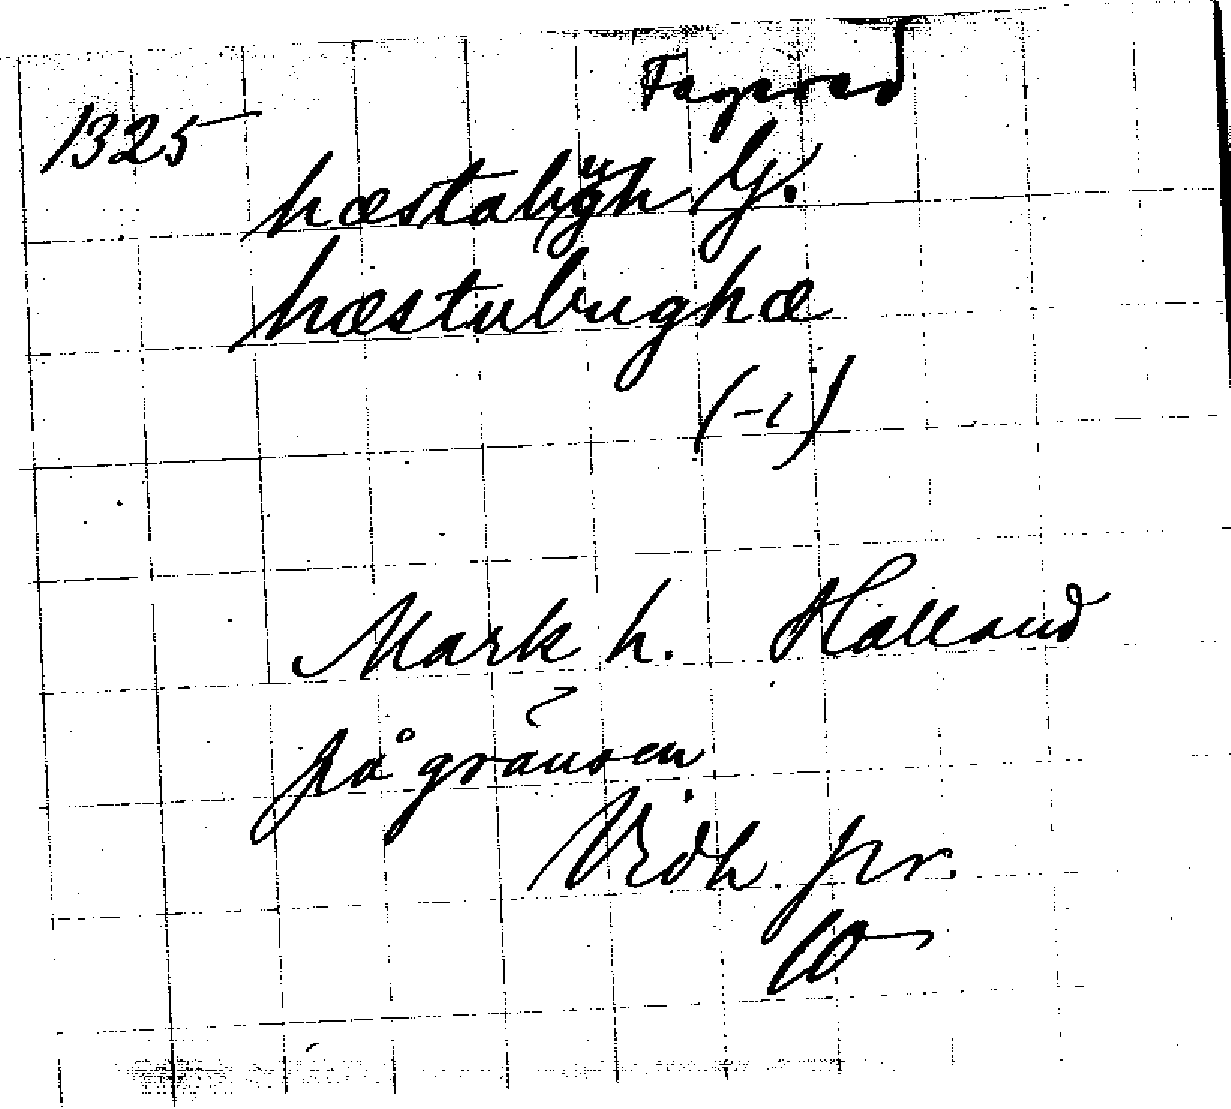 Fagered
1325
hæstabügh G.
hæstubughæ
(-i)
Mark h. Halland
på gränsen
Vidh. pr.
10